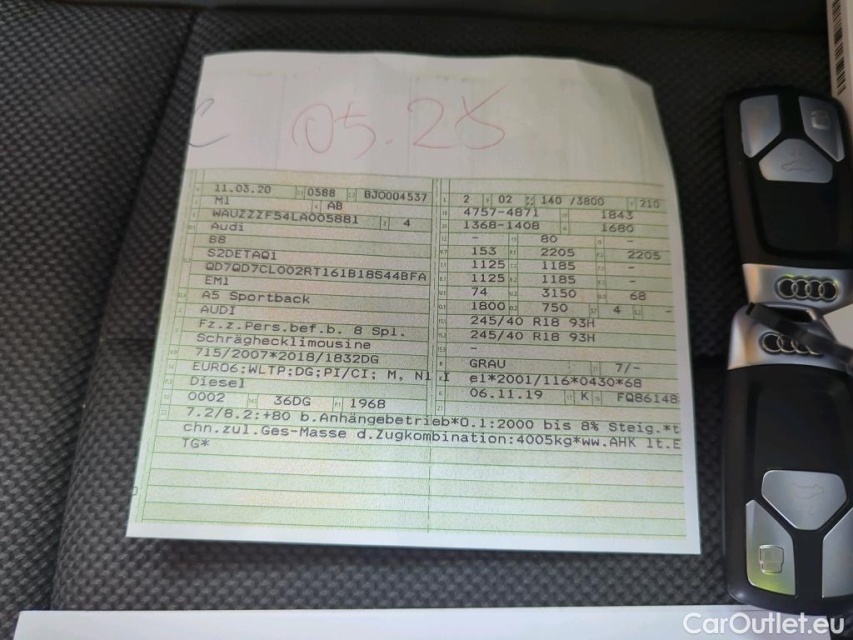 05.25
11.03.20 0588 BJO004537
M1 AB
WAUZZZF54LA005881 4
Audi
B8
S2DETAQ1
QD7QD7CL002RT161B18S44BFA
EM1
A5 Sportback
AUDI
Fz.z.Pers.bef.b. 8 Spl.
Schräghecklimousine
715/2007*2018/1832DG
EURO6;WLTP;DG;PI/CI; M, N1 I
Diesel
0002 36DG 1968
2 02 140 /3800 210
4757-4871 1843
1368-1408 1680
- 80 -
153 2205 2205
1125 1185 -
1125 1185 -
74 3150 68
1800 750 4 -
245/40 R18 93H
245/40 R18 93H
GRAU 7/-
e1*2001/116*0430*68
06.11.19 K FQ86148
7.2/8.2:+80 b.Anhängebetrieb*0.1:2000 bis 8% Steig.*t
chn.zul.Ges-Masse d.Zugkombination:4005kg*ww.AHK lt.E
TG*
CarOutlet.eu